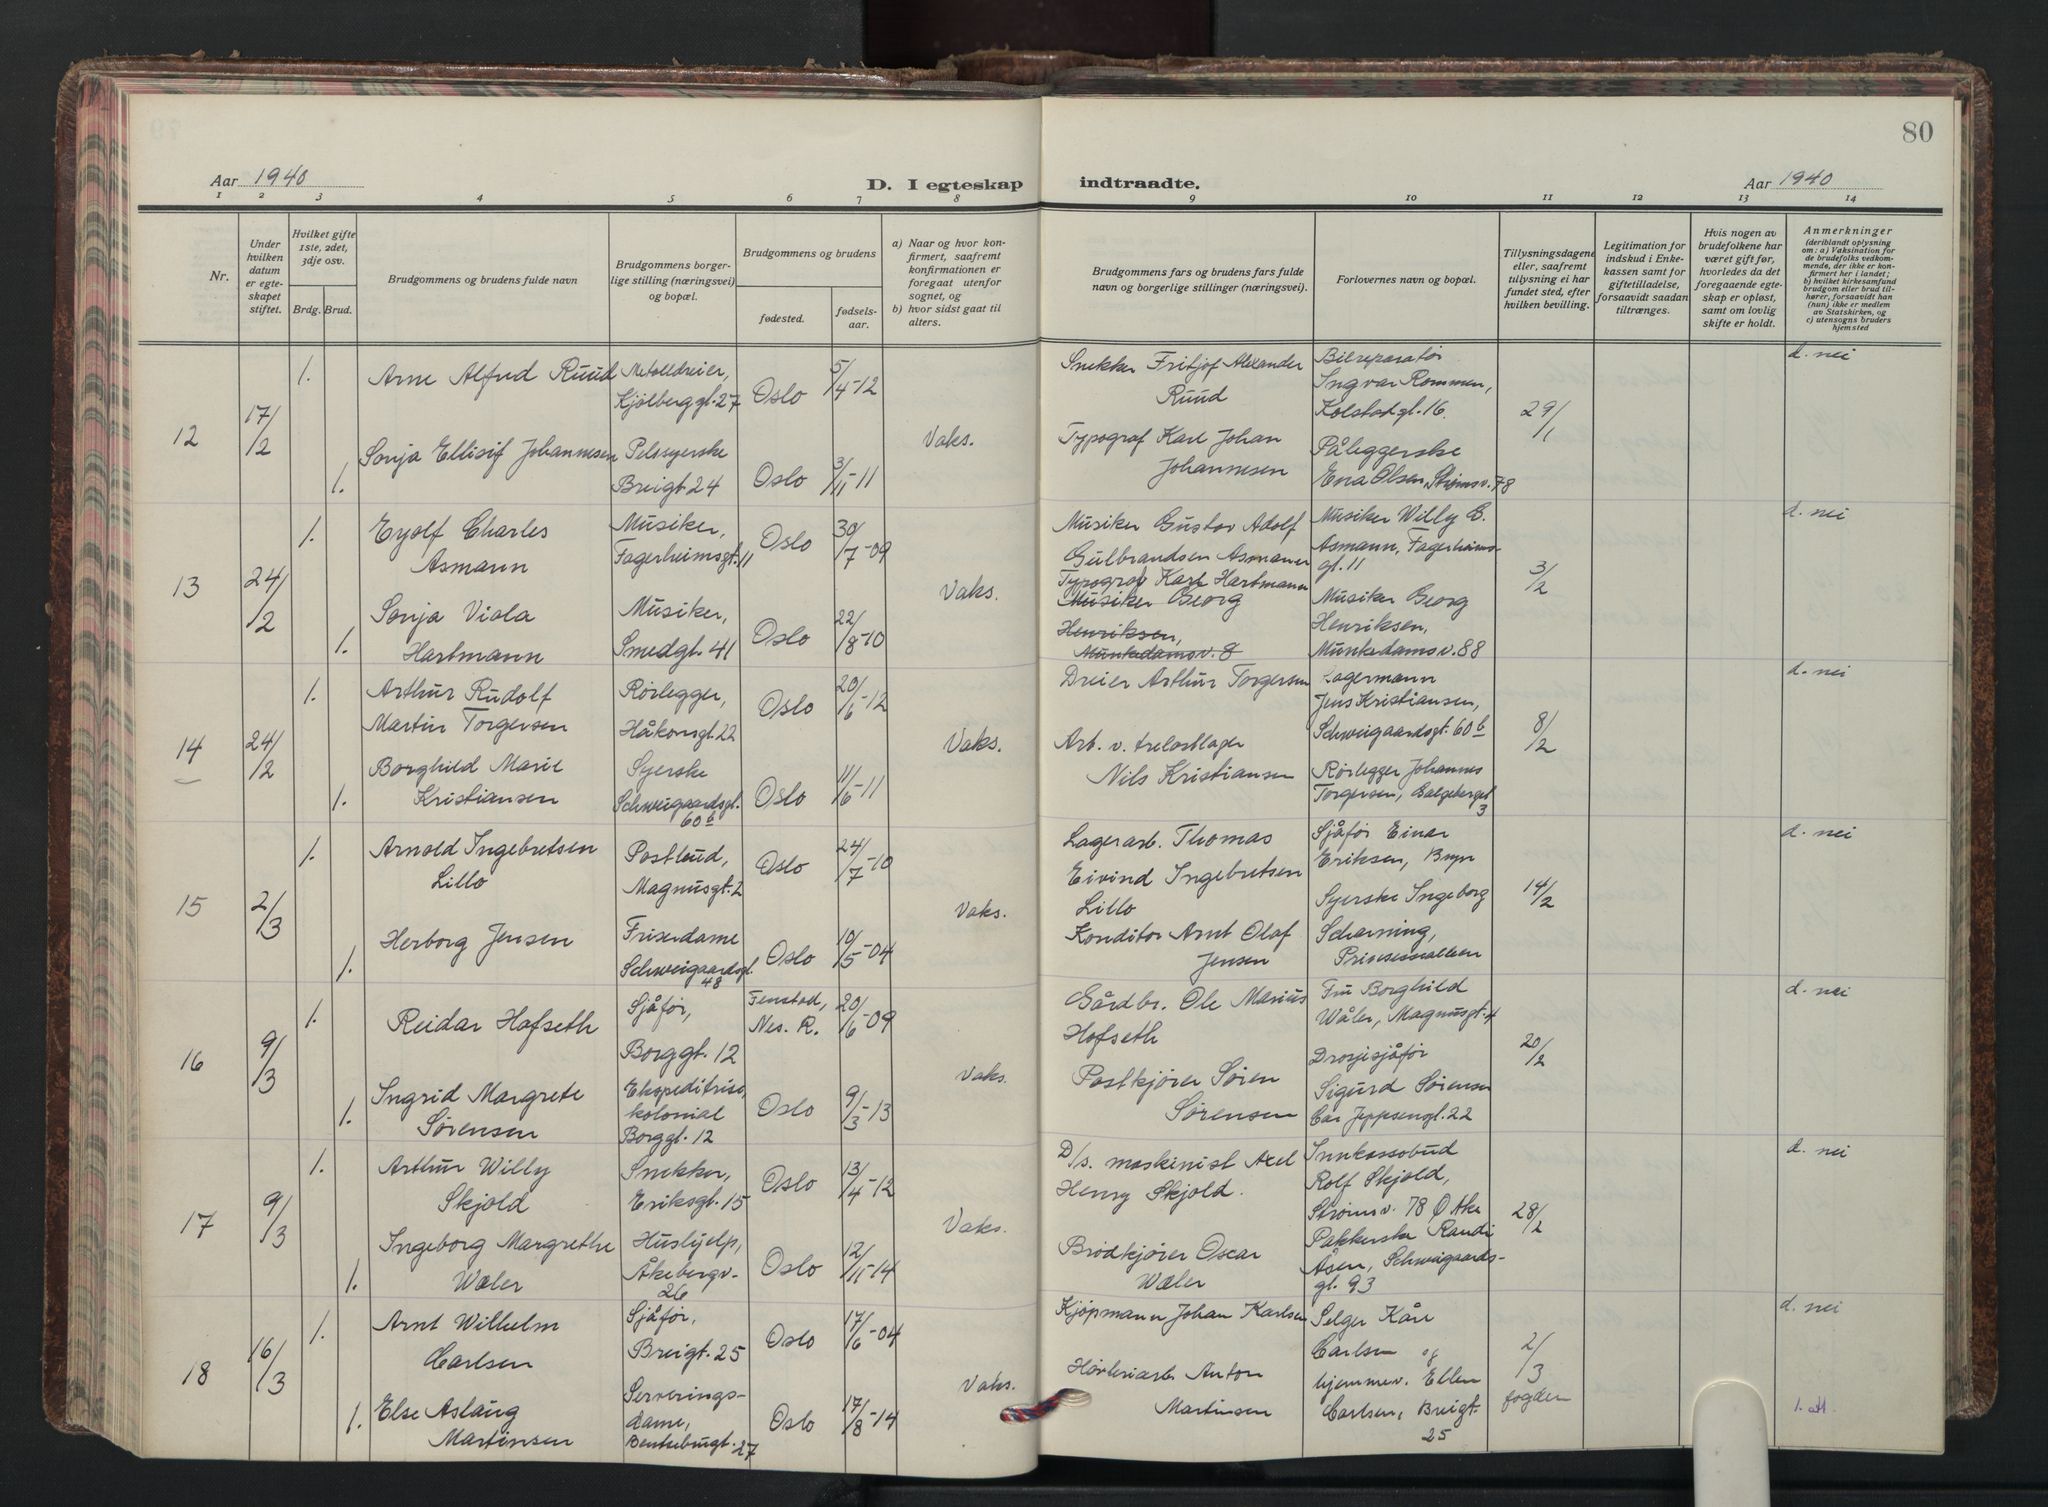 80
Aar 1940
D. I egteskap indtraadte.
Aar 1940
1 2 3 4 5 6 7 8 9 10 11 12 13 14
Nr.
Under hvilken datum er egteskapet stiftet.
Hvilket gifte 1ste, 2det, 3dje osv.
Brdg. Brud.
Brudgommens og brudens fulde navn
Brudgommens borgerlige stilling (næringsvei) og bopæl.
Brudgommens og brudens
fødested.
fødselsaar.
a) Naar og hvor konfirmert, saafremt konfirmationen er foregaat utenfor sognet, og
b) hvor sidst gaat til alters.
Brudgommens fars og brudens fars fulde navn og borgerlige stillinger (næringsvei).
Forlovernes navn og bopæl.
Tillysningsdagene eller, saafremt tillysning ei har fundet sted, efter hvilken bevilling.
Legitimation for indskud i Enkekassen samt for giftetilladelse, forsaavidt saadan tiltrænges.
Hvis nogen av brudefolkene har været gift før, hvorledes da det foregaaende egteskap er opløst, samt om lovlig skifte er holdt.
Anmerkninger
(deriblandt oplysning om: a) Vaksination for de brudefolks vedkommende, der ikke er konfirmert her i landet; b) hvilket kirkesamfund brudgom eller brud tilhører, forsaavidt han (hun) ikke er medlem av Statskirken, og c) utensogns bruders hjemsted
12
17/2
1. Arne Alfred Ruud
Metalldreier,
Kjølberggt. 27
Oslo
5/4-12
Snekker Fritjof Alexander
Ruud
Bilreparatør
Ingvar Rommen,
Kolstadgt. 16.
29/1
d. nei
1. Sonja Ellisif Johannesen
Pelssyerske
Breigt 24
Oslo
3/11-11
Vaks.
Typograf Karl Johan
Johannesen
Påleggerske
Ena Olsen, Strømsv. 78
13
24/2
1. Eyolf Charles
Asmann
Musiker,
Fagerheimsgt. 11
Oslo
30/7-09
Vaks.
Musiker Gustav Adolf
Gulbrandsen Asmann
Musiker Willy E.
Asmann, Fagerheims-
gt. 11
3/2
d. nei
1. Sonja Viola
Hartmann
Musiker,
Smedgt. 41
Oslo
22/8-10
Typograf Karl Hartmann
Musiker Georg
Henriksen,
Munkedamsv. 8
Musiker Georg
Henriksen,
Munkedamsv. 88
14
24/2
1. Arthur Rudolf
Martin Torgersen
Rørlegger,
Håkonsgt. 22
Oslo
20/6-12
Vaks.
Dreier Arthur Torgersen
Lagermann
Jens Kristiansen,
Schweigaardsgt. 60 b
8/2
d. nei
1. Borghild Marie
Kristiansen
Syerske
Schweigaardsgt.
60 b
Oslo
11/6-11
Arb. v. trelastlager
Nils Kristiansen
Rørlegger Johannes
Torgersen, Galgeberget
3
15
2/3
1. Arnold Ingebretsen
Lillo
Postbud,
Magnusgt. 2
Oslo
24/7-10
Vaks.
Lagerarb. Thomas
Eivind Ingebretsen
Lillo
Sjåfør Einar
Eriksen, Bryn
14/2
d. nei
1. Herborg Jensen
Friserdame
Schweigaardsgt.
48
Oslo
10/5-04
Konditor Arnt Olaf
Jensen
Syerske Ingeborg
Scharning,
Prinsessealleen
16
9/3
1. Reidar Hofseth
Sjåfør,
Borggt. 12
Fenstad,
Nes. R.
20/6-09
Vaks.
Gårdbr. Ole Marius
Hofseth
Fru Borghild
Wåler, Magnusgt. 4
20/2
d. nei
1. Ingrid Margrete
Sørensen
Ekspeditrise,
kolonial
Borggt. 12
Oslo
9/3-13
Postkjører Søren
Sørensen
Drosjesjåfør
Sigurd Sørensen
Car Jeppsensgt. 22
17
9/3
1. Arthur Willy
Skjold
Snekker,
Eriksgt. 15
Oslo
13/4-12
Vaks.
D/s. maskinist Axel
Henry Skjold.
Innkassobud
Rolf Skjold,
Strømsv. 78 Ø Aker
28/2
d. nei
1. Ingeborg Margrethe
Wæler
Hushjelp,
Åkebergv.
26
Oslo
12/11-14
Brødkjører Oscar
Wæler
Pakkerske Randi
Åsen, Schweigaards-
gt. 93
18
16/3
1. Arnt Wilhelm
Carlsen
Sjåfør,
Breigt. 25
Oslo
17/6-04
Vaks.
Kjøpmann Johan Karlsen
Selger Kåre
Carlsen og
2/3
fogden
d. nei
1. Else Aslaug
Martinsen
Serverings-
dame,
Bentsebrugt. 27
Oslo
17/8-14
Høvleriarb. Anton
Martinsen
hjemmev. Ellen
Carlsen, Breigt.
25
1. att.